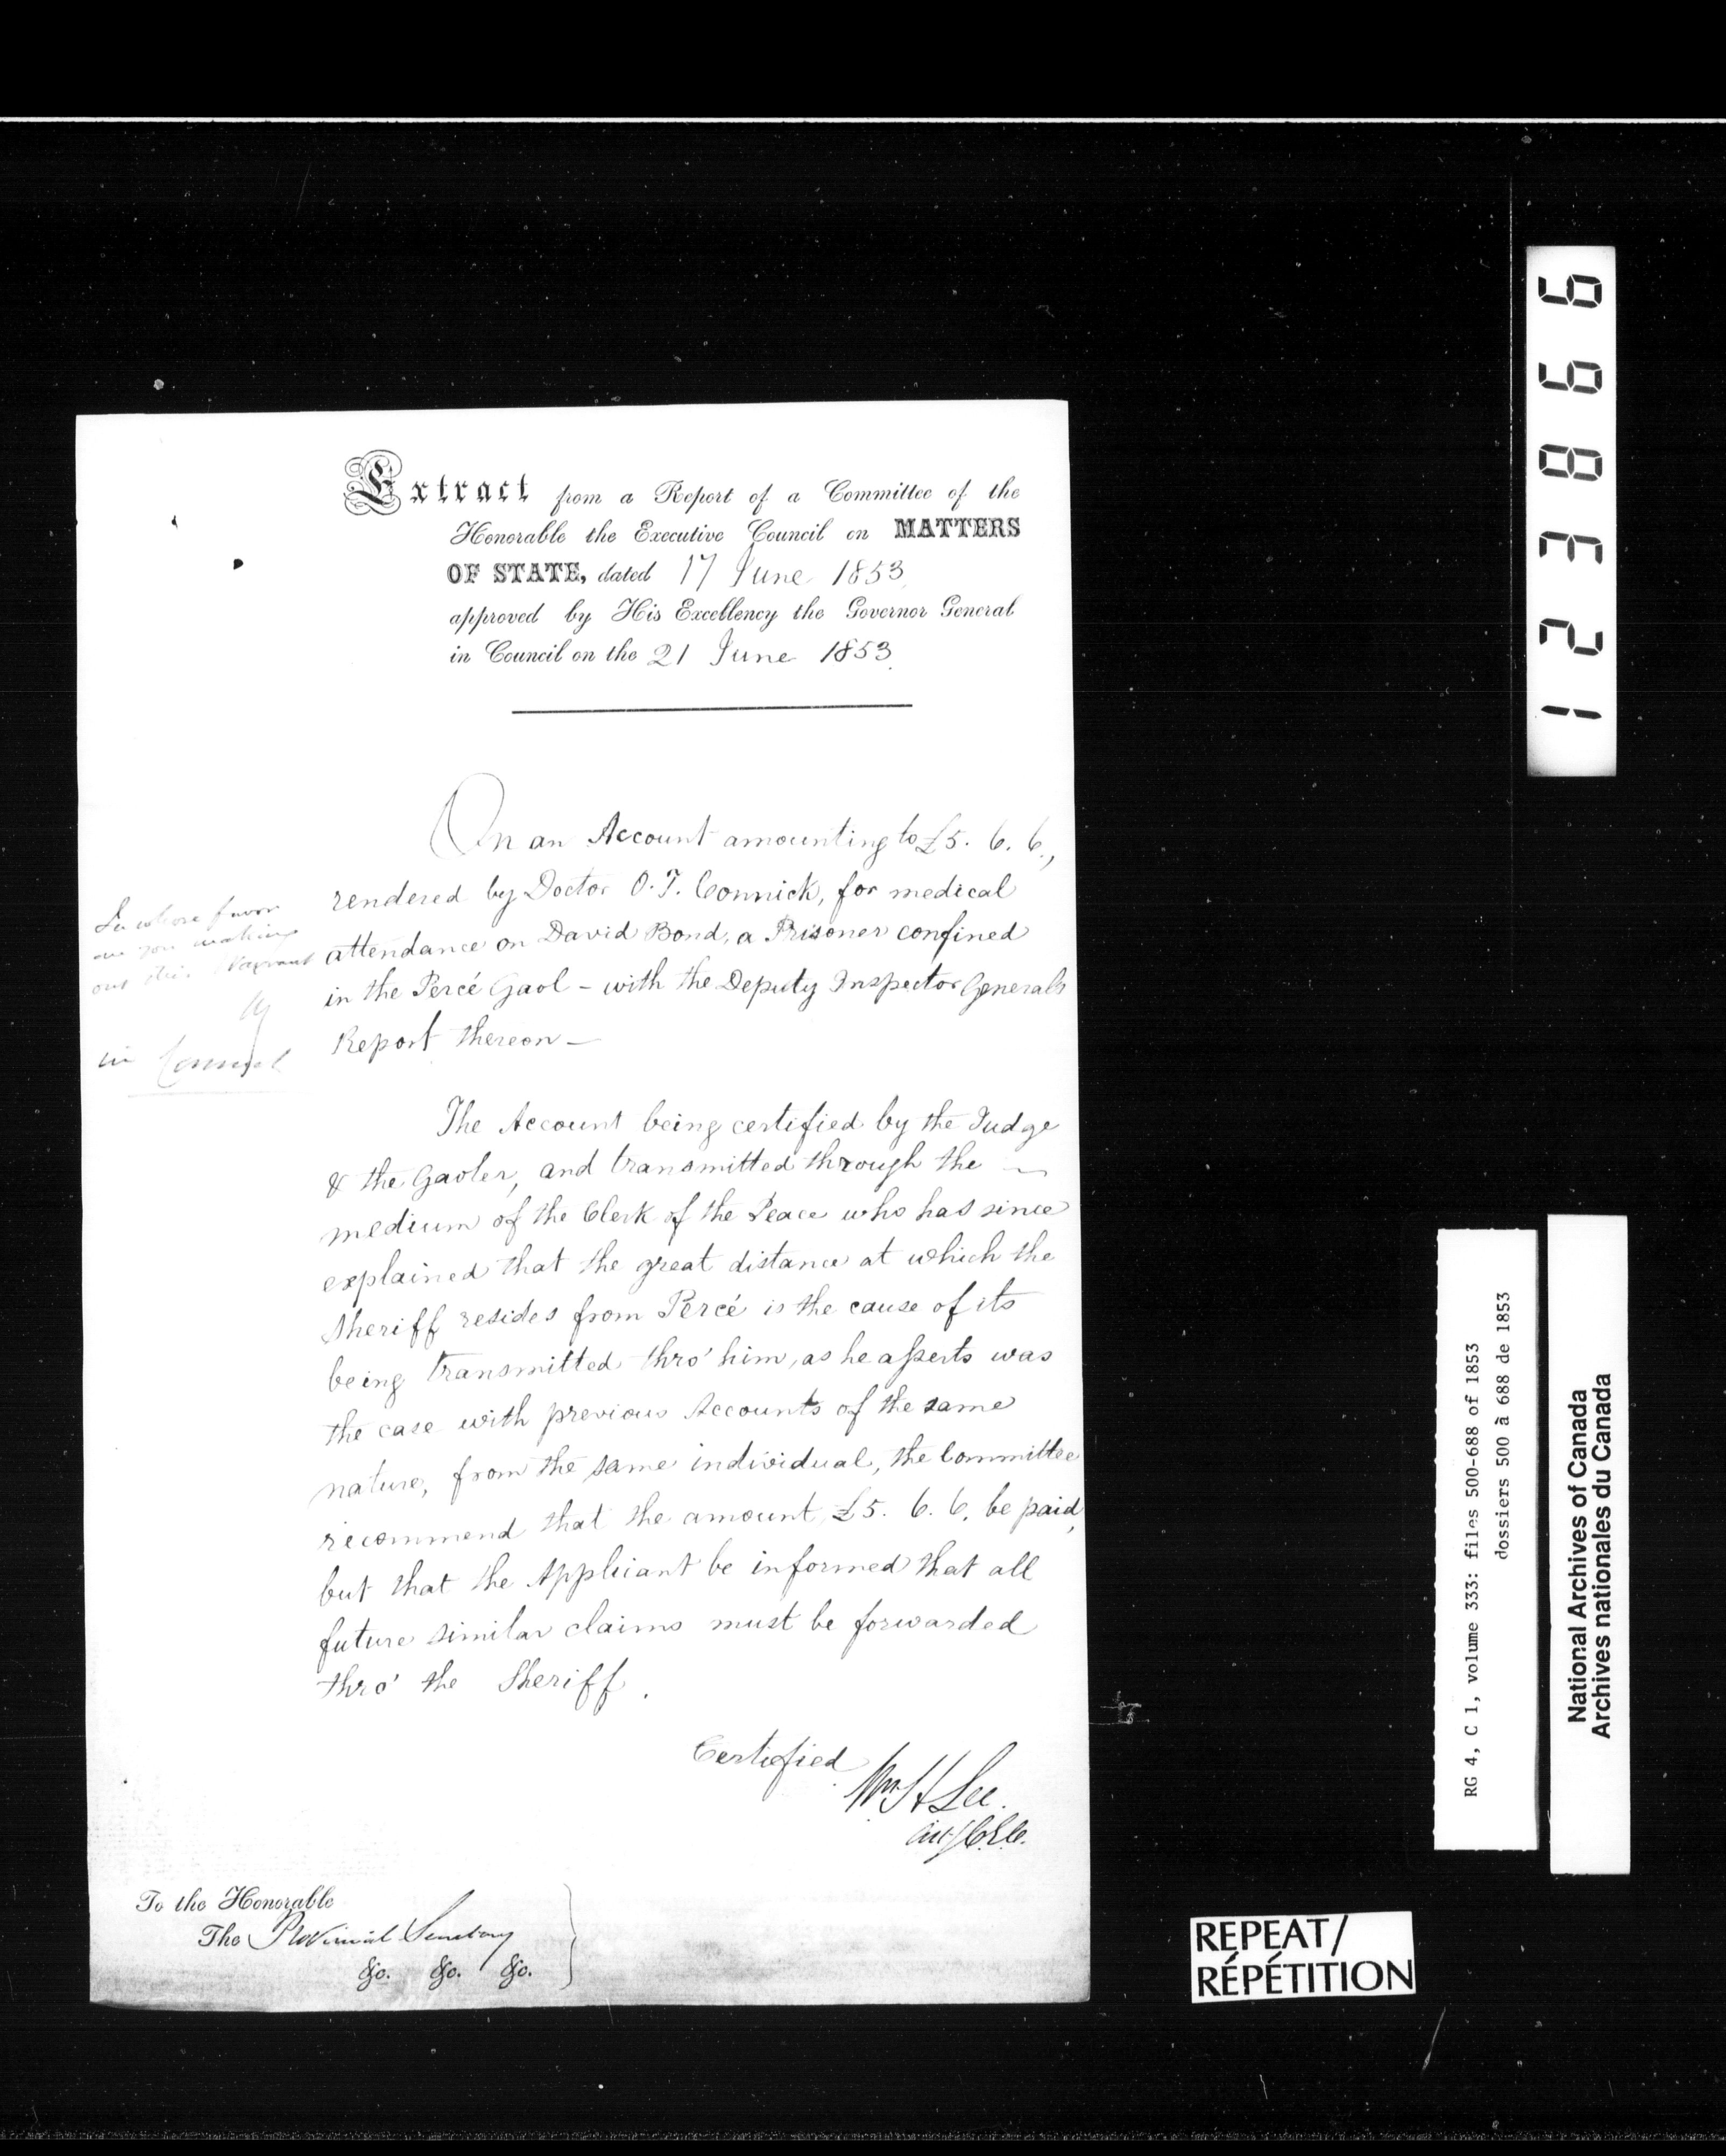 Extract from a Report of a Committee of the
Honorable the Executive Council on MATTERS
OF STATE, dated 17 June 1853
approved by His Excellency the Governor General
in Council on the 21 June 1853.
On an Account amounting to £5. 6. 6.,
rendered by Doctor O. T. Connick, for medical
attendance on David Bond, a Prisoner confined
in the Percé Gaol – with the Deputy Inspector Generals
Report thereon –
In whose favor
are you making
out this Warrant
in Council
The Account being certified by the Judge
& the Gaoler, and transmitted through the
medium of the Clerk of the Peace who has since
explained that the great distance at which the
Sheriff resides from Percé is the cause of its
being transmitted thro' him, as he asserts was
the case with previous Accounts of the same
nature, from the same individual, the Committee
recommend that the amount £5. 6. 6. be paid,
but that the Applicant be informed that all
future similar claims must be forwarded
thro' the Sheriff.
Certified
Wm H Lee
To the Honorable
The Provincial Secretary
&c. &c. &c.
123866
RG 4, C 1, volume 333: files 500-688 of 1853
dossiers 500 à 688 de 1853
National Archives of Canada
Archives nationales du Canada
REPEAT/
RÉPÉTITION